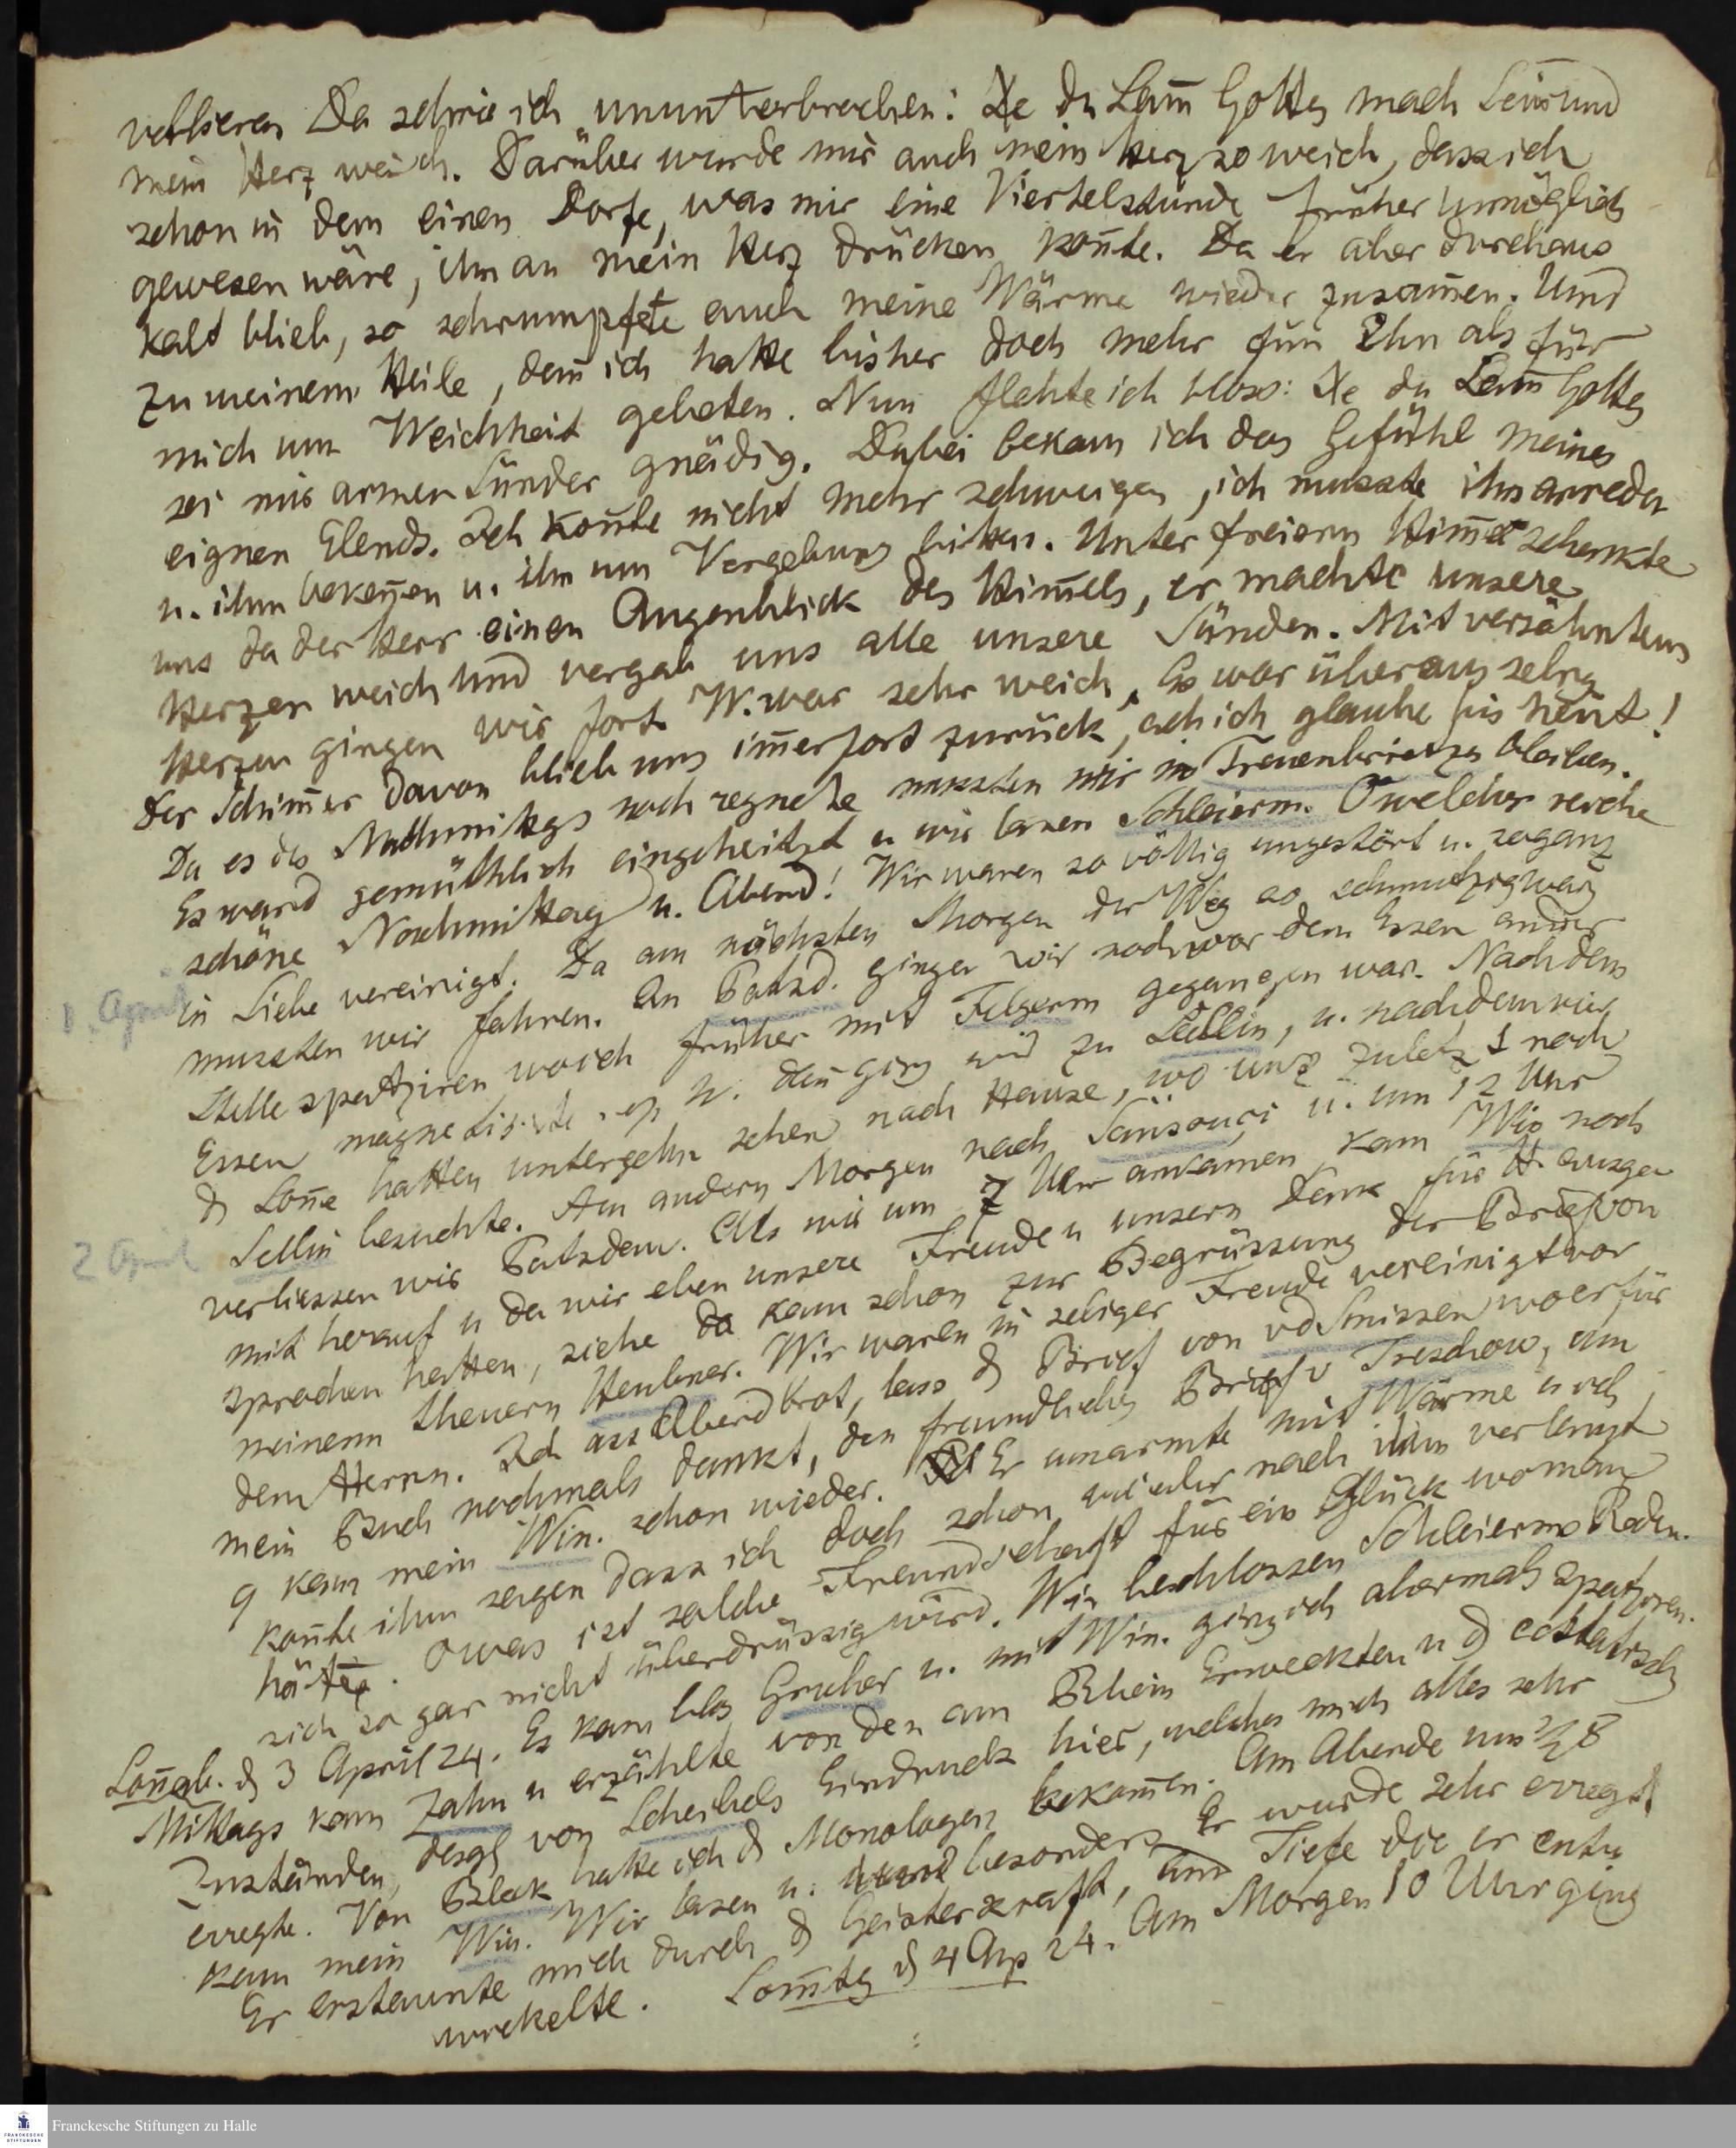 verlieren Da schrie ich ununterbrochen: Xe du Lam̄ Gottes mach sein und
mein Herz weich. Darüber wurde mir auch mein Herz so weich, dass ich
schon in dem einen Dorfe, was mir eine Viertelstunde früher unmöglich
gewesen wäre, ihn an mein Herz drücken kon̄te. Da er aber durchaus
kalt blieb, so schrumpfete auch meine Wärme wieder zusam̄en. Und
zu meinem Heile, den̄ ich hatte bisher doch mehr für Ihn als für
mich um Weichheit gebeten. Nun flehte ich bloss: Xe du Lam̄ Gottes
sei mir armen Sünder gnädig. Dabei bekam ich das Gefühl meines
eignen Elends. Ich kon̄te nicht mehr schweigen, ich musste ihn anreden
u. ihm beken̄en u. ihn um Vergebung bitten. Unter freiem Him̄el schenkte
uns da der Herr einen Augenblick des Him̄els, er machte unsere
Herzen weich und vergab uns alle unsere Sünden. Mit versöhntem
Herzen gingen wir fort W. war sehr weich, Es war überaus selig
der Schim̄er davon blieb uns im̄erfort zurück, ach ich glaube bis heut!
Da es des Nachmittags noch regnete mussten wir in Treuenbrietzen bleiben.
Es ward gemüthlich eingeheitzt u wir lasen Schleierm. O welcher reiche
schöne Nachmittag u. Abend! Wir waren so völlig ungestört u. so ganz
in Liebe vereinigt. Da am nächsten Morgen der Weg so schmutzig war,
1. April
mussten wir fahren. In Potsd. gingen wir noch vor dem Essen an der
Stelle spatziren wo ich früher mit Felgerm gegangen war. Nach dem
Essen magnetisirte W. dan̄ ging wir zu Sellin, u. nachdem wir
d Son̄e hatten untergehn sehen nach Hause, wo uns zuletzt noch
Sellin besuchte. Am andern Morgen nach Sansouçi u. um 12 Uhr
2 April
verliessen wir Potsdam. Als wir um 7 Uhr ankamen kam Win noch
mit herauf u da wir eben unsere Freude u unsern Dank für H. ausge
sprochen hatten, siehe da kam schon zur Begrüssung der Brief von
meinem theuern Heubner. Wir waren in seliger Freude vereinigt vor
dem Herrn. Ich ass Abendbrot, lass d Brief von vd Smissen wo er für
mein Buch nochmals dankt, den freundlichen Brief v Treschow, um
9 kam mein Win. schon wieder. Er umarmte mit Wärme u ich
kon̄te ihm sagen dass ich doch schon wieder nach ihm verlangt
hätte. O was ist solche Freundschaft für ein Glück wo man
sich so gar nicht überdrüssig wird. Wir beschlossen Schleierms Reden.
Son̄ab. d 3 April 24. Es kam blos Gruber u. mit Win. ging ich abermals spatziren.
Mittags kam Zahn u erzählte von den am Rhein Erweckten u d ecstatisch
Zuständen, desgl von Scheibels Eindruck hier, welches mich alles sehr
erregte. Von Bleek hatte ich d Monologen bekom̄en. Am Abende um ½ 8
kam mein Win. Wir lasen u. besonders Er wurde sehr erregt.
Er erstaunte mich durch d Geisteskraft, und Tiefe die er entw
wickelte. Son̄tg d 4 Ap 24. Am Morgen 10 Uhr ging
Franckesche Stiftungen zu Halle